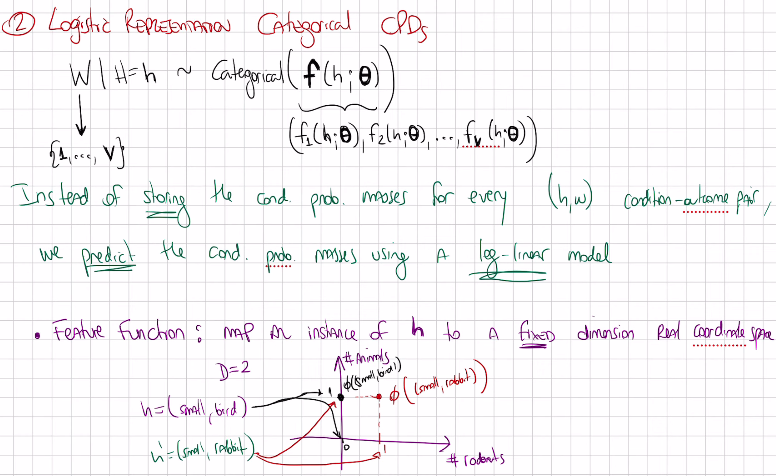 ② Logistic Representation Categorical CPDs
W | H=h ~ Categorical(f(h;θ))
{1,...,V}
(f₁(h;θ), f₂(h;θ), ..., fᵥ(h;θ))
Instead of storing the cond. prob. masses for every (h,w) condition-outcome pair,
we predict the cond. prob. masses using a log-linear model
• Feature Function: map an instance of h to a fixed dimension Real coordinate space
D=2
# Animals
ϕ(small, bird)
1
ϕ((small, rabbit))
h=(small, bird)
h'=(small, rabbit)
0
1
# rodents